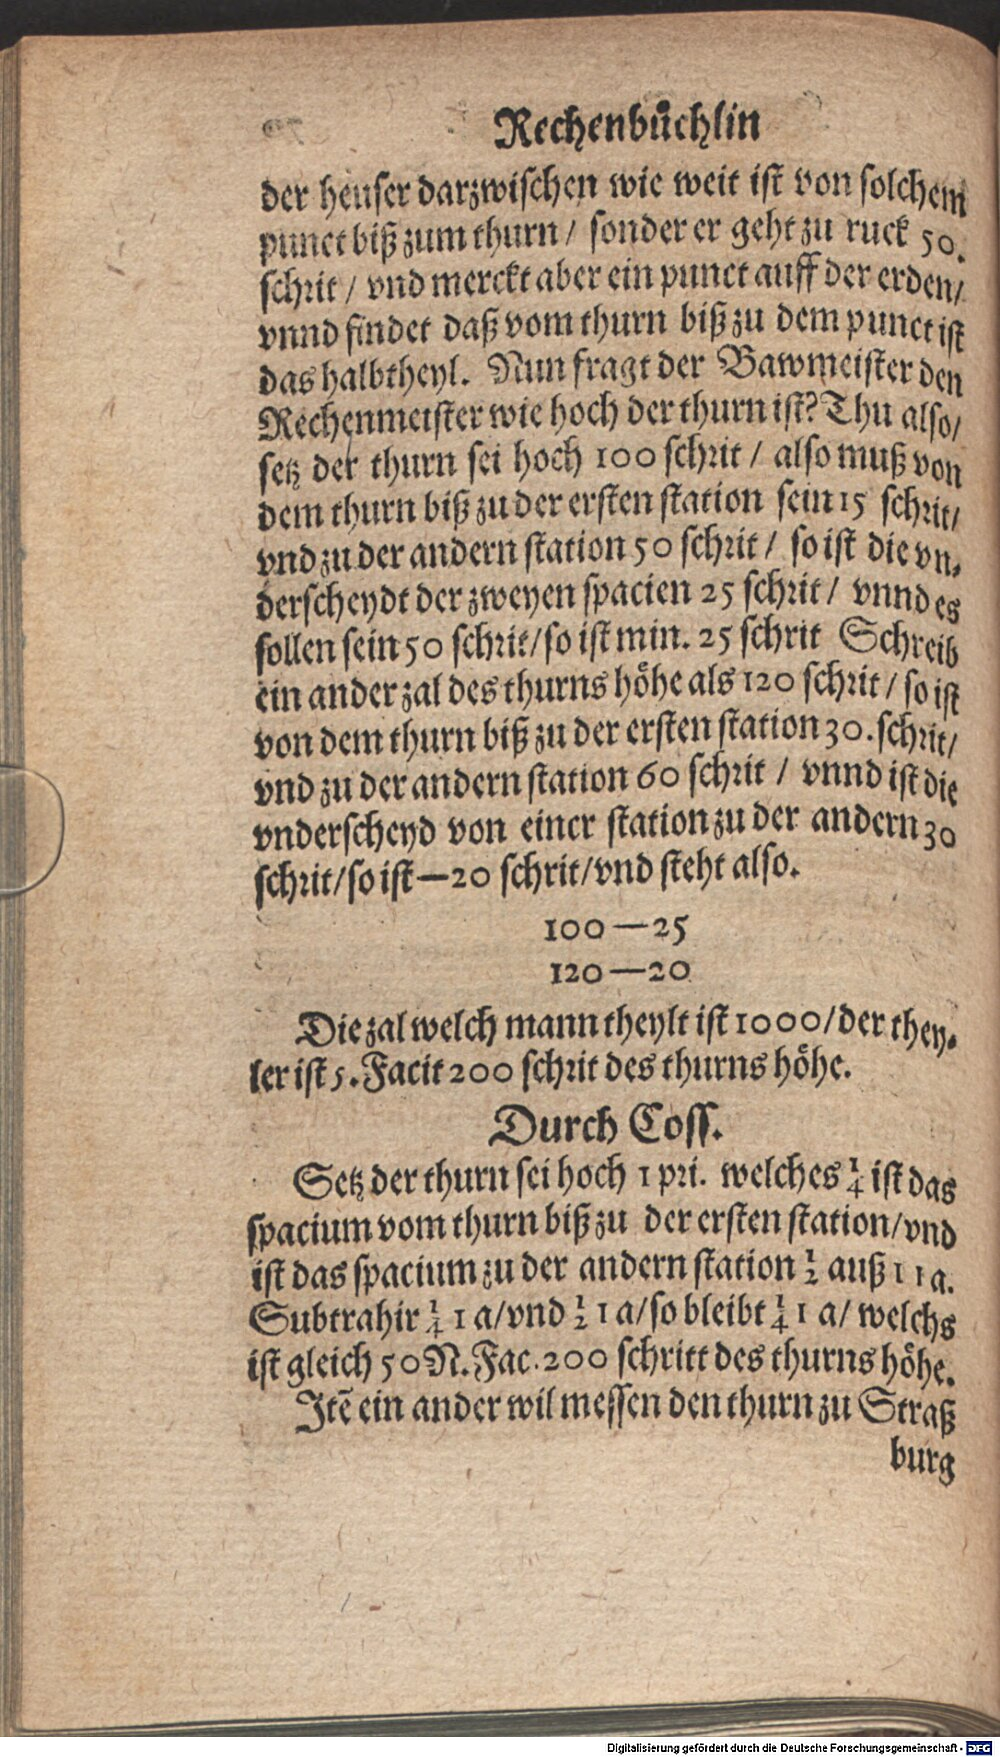 Rechenbuͤchlin
der heuser darzwischen wie weit ist von solchem
punct biß zum thurn / sonder er geht zu ruck 50.
schrit / vnd merckt aber ein punct auff der erden/
vnnd findet daß vom thurn biß zu dem punct ist
das halbtheyl. Nun fragt der Bawmeister den
Rechenmeister wie hoch der thurn ist? Thu also/
setz der thurn sei hoch 100 schrit / also muß von
dem thurn biß zu der ersten station sein 15 schrit/
vnd zu der andern station 50 schrit / so ist die vn-
derscheydt der zweyen spacien 25 schrit / vnnd es
sollen sein 50 schrit/so ist min. 25 schrit Schreib
ein ander zal des thurns höhe als 120 schrit / so ist
von dem thurn biß zu der ersten station 30. schrit/
vnd zu der andern station 60 schrit / vnnd ist die
vnderscheyd von einer station zu der andern 30
schrit/so ist—20 schrit/vnd steht also.
100—25
120—20
Die zal welch mann theylt ist 1000/der they-
ler ist 5. Facit 200 schrit des thurns höhe.
Durch Coss.
Setz der thurn sei hoch 1 pri. welches ¼ ist das
spacium vom thurn biß zu der ersten station/vnd
ist das spacium zu der andern station ½ auß 1 1 a.
Subtrahir ¼ 1 a/vnd ½ 1 a/so bleibt ¼ 1 a/ welchs
ist gleich 50 N. Fac. 200 schritt des thurns höhe.
Itē ein ander wil messen den thurn zu Straß
burg
Digitalisierung gefördert durch die Deutsche Forschungsgemeinschaft - DFG